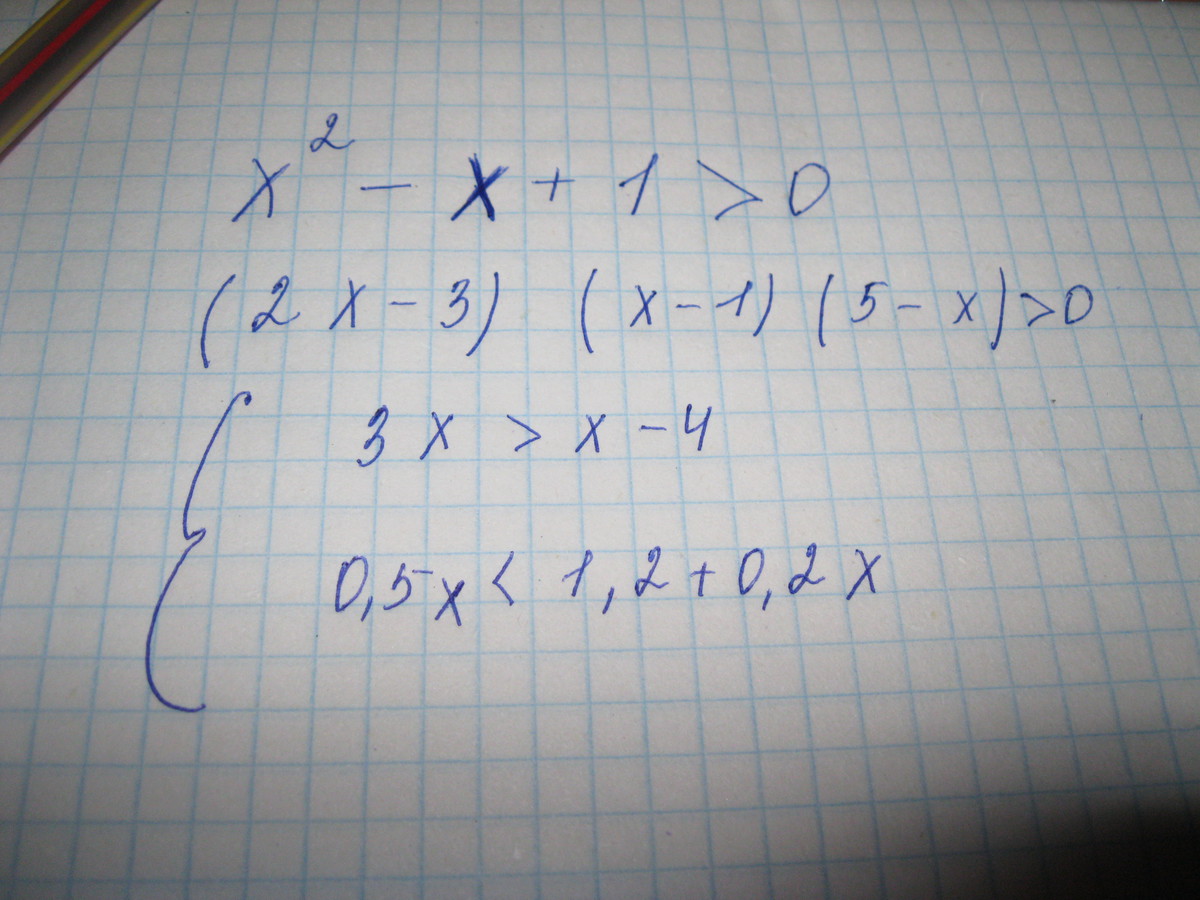 x² - x + 1 > 0
(2x - 3) (x - 1) (5 - x) > 0
{ 3x > x - 4
0,5x < 1,2 + 0,2x